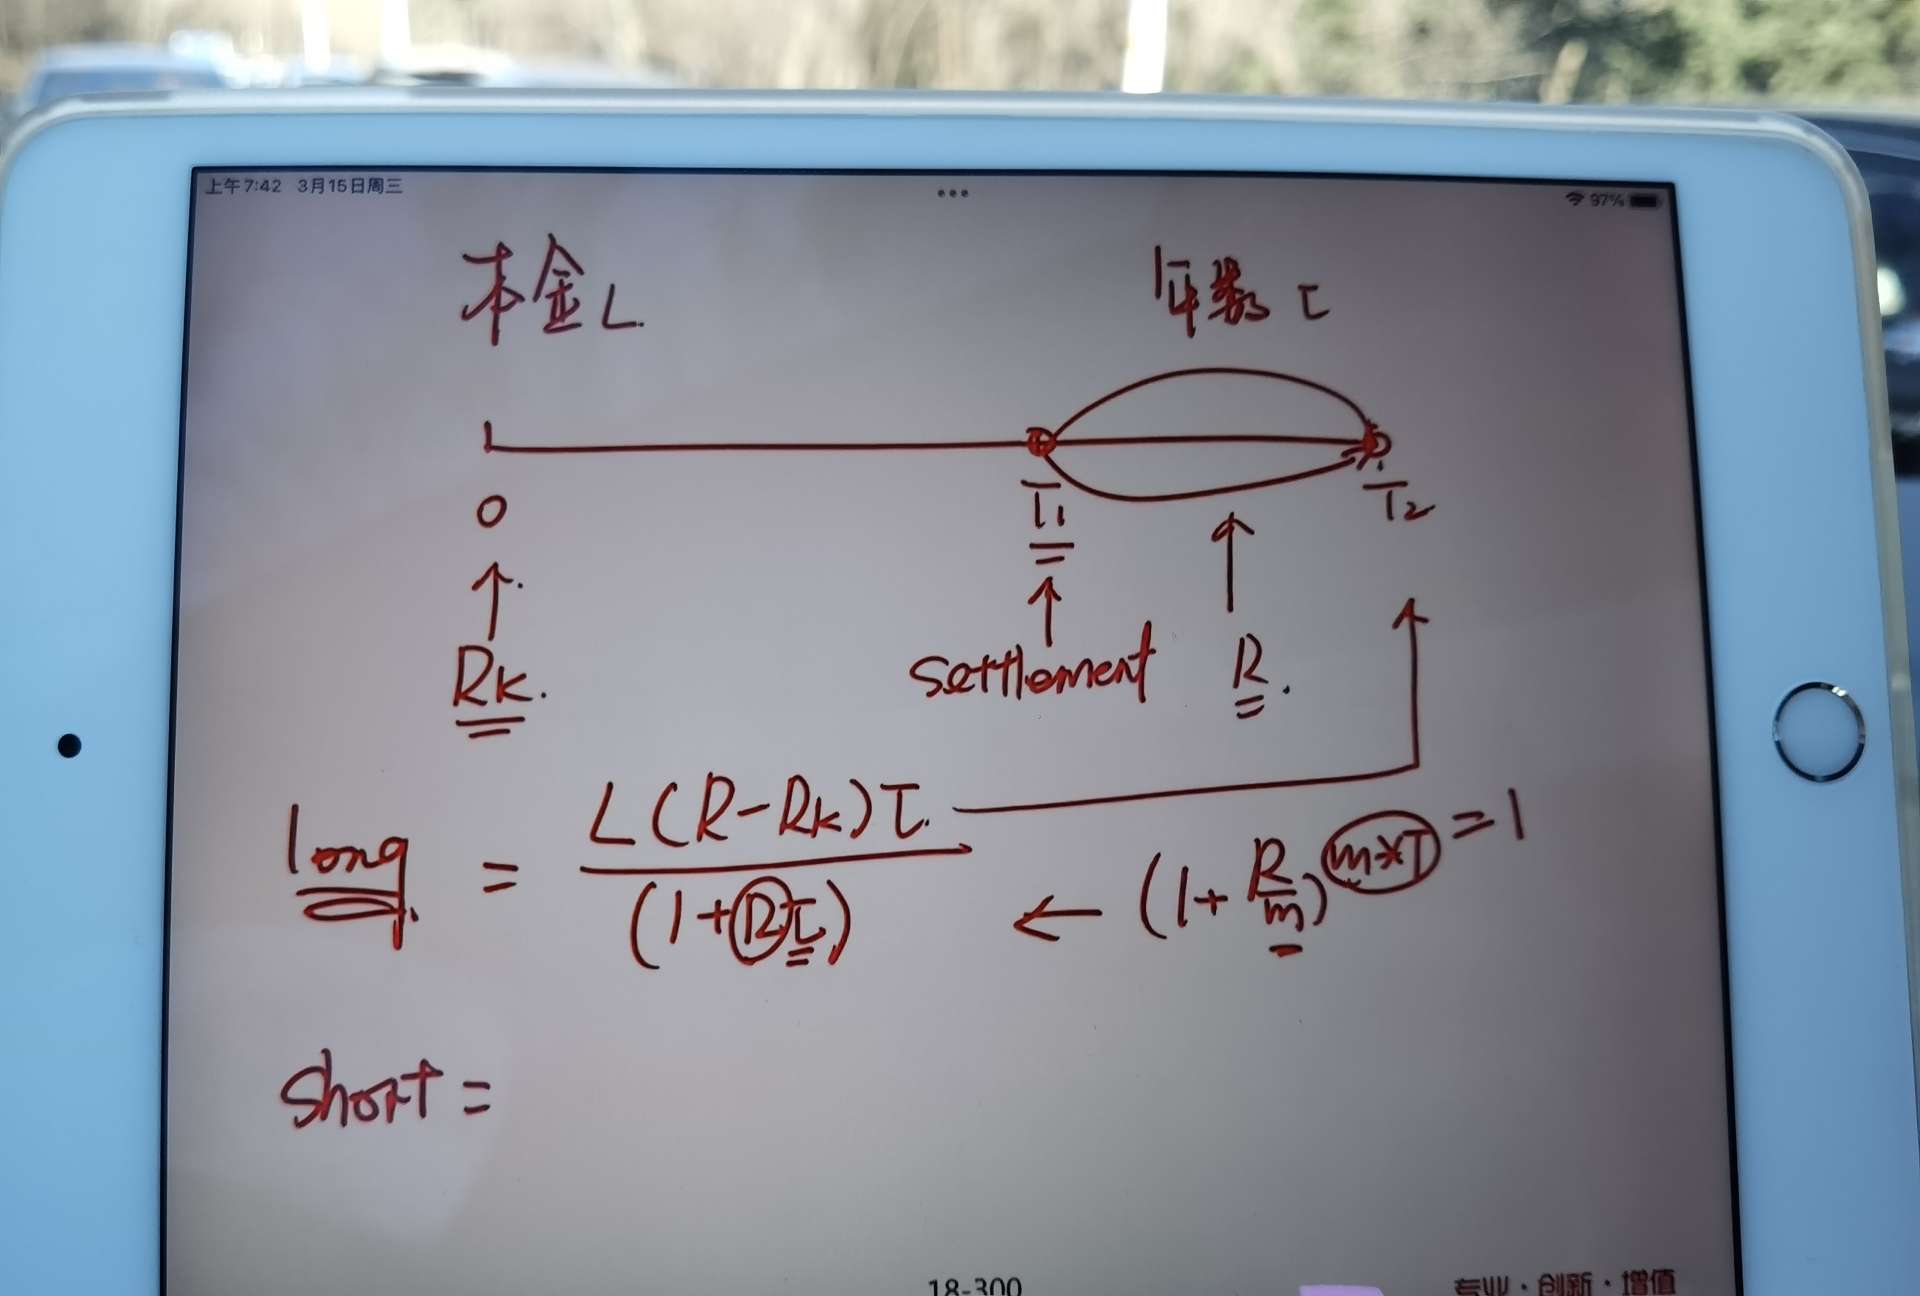 上午7:42 3月15日周三
97%
本金L
年数τ
0 T₁ T₂
Rk. settlement R.
long = L(R-Rk)τ. / (1+Rτ) ← (1+R/m)^(m*T) = 1
short =
18-300
专业·创新·增值